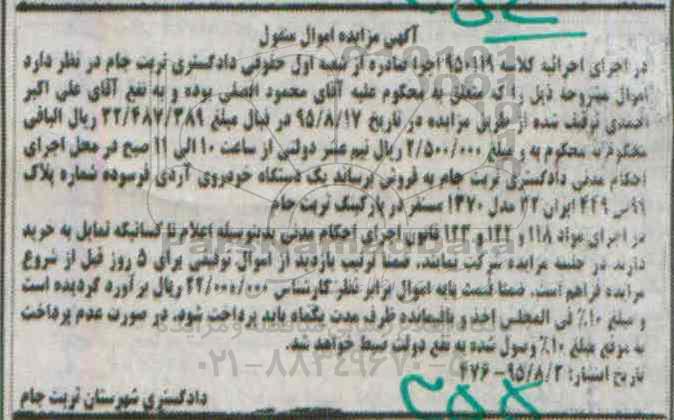 آگهی مزایده اموال منقول
در اجرای اجرائیه کلاسه ۹۵۰۱۱۹ اجرا صادره از شعبه اول حقوقی دادگستری تربت جام در نظر دارد
اموال مشروحه ذیل را که متعلق به محکوم علیه آقای محمود افضلی بوده و به نفع آقای علی اکبر
احمدی توقیف شده از طریق مزایده در تاریخ ۹۵/۸/۱۷ در قبال مبلغ ۳۲/۴۸۷/۳۸۹ ریال الباقی
محکوم به محکوم به و مبلغ ۲/۵۰۰/۰۰۰ ریال نیم عشر دولتی از ساعت ۱۰ الی ۱۱ صبح در محل اجرای
احکام مدنی دادگستری تربت جام به فروش برساند یک دستگاه خودروی آردی فرسوده شماره پلاک
۹۱س ۴۴۹ ایران ۳۲ مدل ۱۳۷۰ مستقر در پارکینگ تربت جام
در اجرای مواد ۱۱۸ و ۱۲۲ و ۱۲۳ قانون اجرای احکام مدنی بدینوسیله اعلام تا کسانیکه تمایل به خرید
دارند در جلسه مزایده شرکت نمایند. ضمناً ترتیب بازدید از اموال توقیفی برای ۵ روز قبل از شروع
مزایده فراهم است. ضمنا قیمت پایه اموال برابر نظر کارشناس ۲۲/۰۰۰/۰۰۰ ریال برآورد گردیده است
و مبلغ ۱۰٪ فی المجلس اخذ و باقیمانده ظرف مدت یکماه باید پرداخت شود. در صورت عدم پرداخت
به موقع مبلغ ۱۰٪ وصول شده به نفع دولت ضبط خواهد شد.
تاریخ انتشار: ۹۵/۸/۳- ۴۷۶
دادگستری شهرستان تربت جام
ParsNamadData
۰۲۱-۸۸۳۴۹۶۷۰-۵